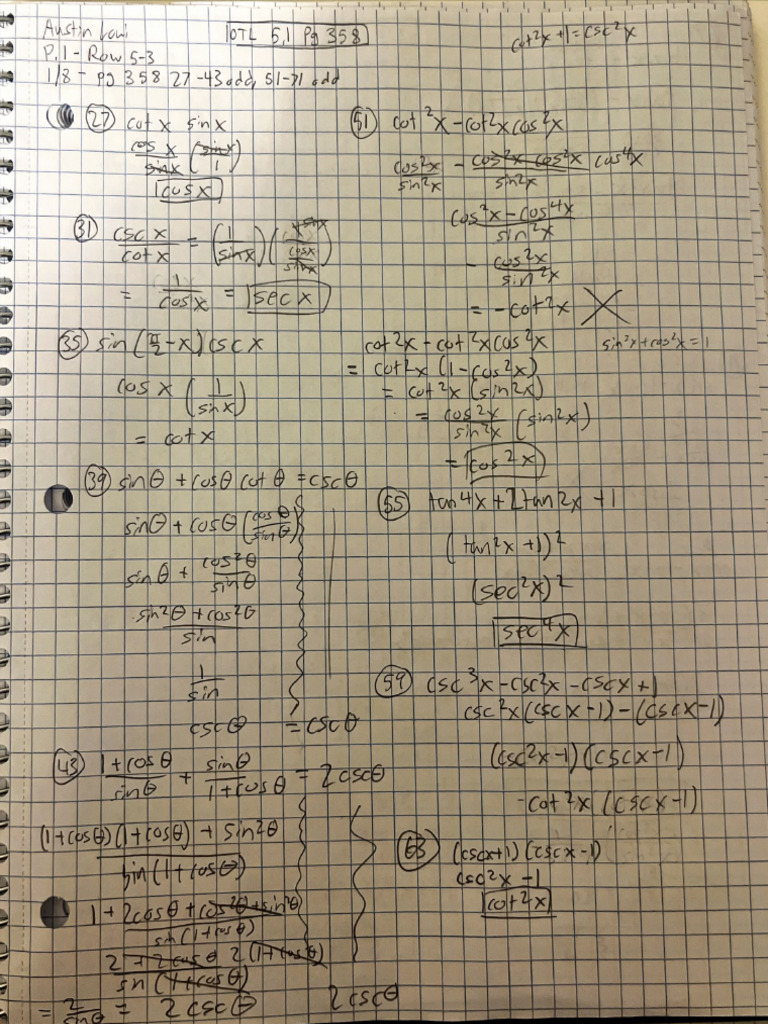 Austin
OTL 5.1 Pg 358
cot²x+1=csc²x
P.1 - Row 5-3
1/8 - pg 358 27-43 odd, 51-71 odd
(27) cotx sinx
cosx/sinx (sinx/1)
cosx
(31) cscx/cotx = (1/sinx)(
= 1/cosx = secx
(35) sin(π/2-x)cscx
cosx (1/sinx)
= cotx
(39) sinθ + cosθ cotθ = cscθ
sinθ + cosθ (cosθ/sinθ)
sinθ + cos²θ/sinθ
sin²θ+cos²θ/sin
1/sin
cscθ = cscθ
(43) 1+cosθ/sinθ + sinθ/1+cosθ = 2cscθ
(1+cosθ)(1+cosθ) + sin²θ/sin(1+cosθ)
1+2cosθ+cos²θ+sin²θ/sin(1+cosθ)
2+2cosθ 2(1+cosθ)/sin(1+cosθ)
= 2/sinθ = 2cscθ 2cscθ
(51) cot²x-cot²xcos²x
cos²x/sin²x - cos²x cos²x/sin²x cos⁴x
cos²x-cos⁴x/sin²x
- cos²x/sin²x
= -cot²x
cot²x-cot²xcos²x
sin²x+cos²x=1
= cot²x(1-cos²x)
= cot²x(sin²x)
= cos²x/sin²x (sin²x)
= cos²x
(55) tan⁴x+2tan2x+1
(tan²x+1)²
(sec²x)²
sec⁴x
(59) csc³x-csc²x-cscx+1
csc²x(cscx-1)-(cscx-1)
(csc²x-1)(cscx-1)
cot²x(cscx-1)
(63) (cscx+1)(cscx-1)
csc²x-1
cot²x